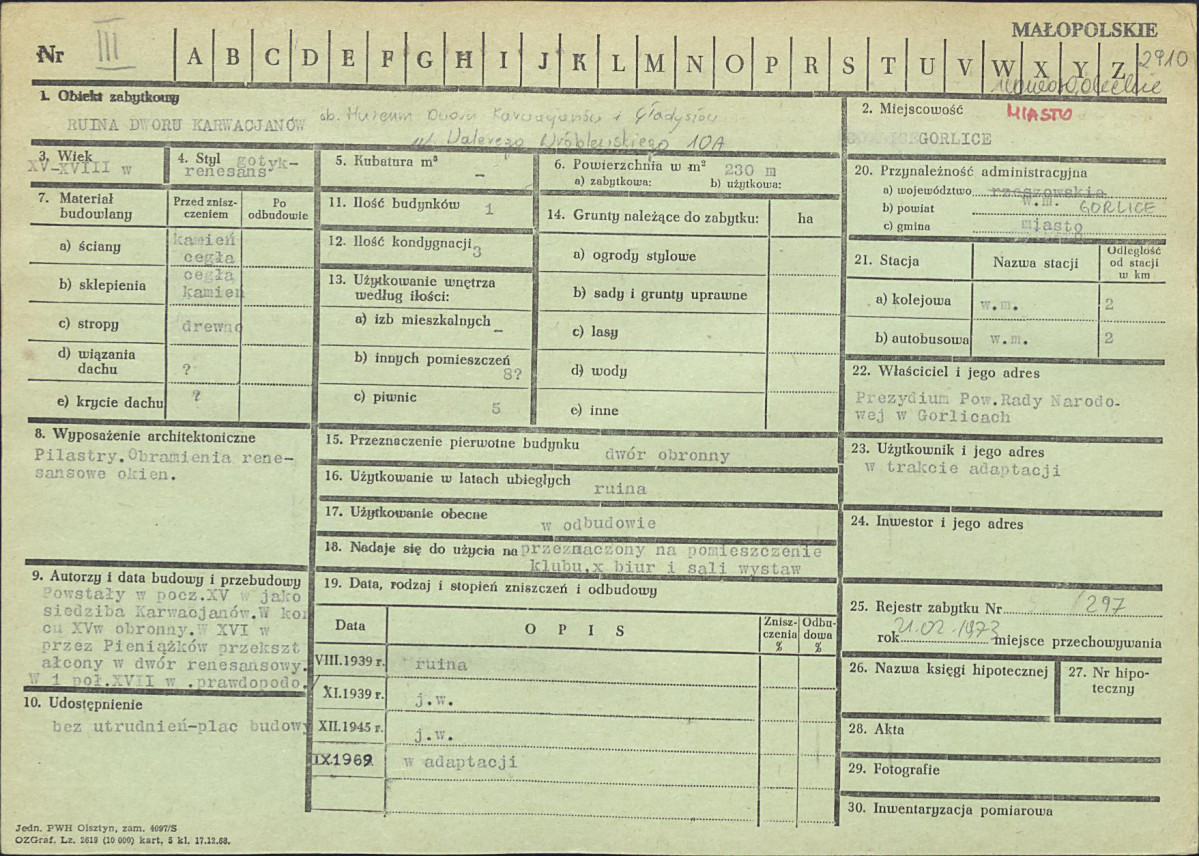 MAŁOPOLSKIE
Nr III A B C D E F G H I J K L M N O P R S T U V W X Y Z 2910
1. Obiekt zabytkowy
ob. Muzeum Dwór Karwacjanów i Gładyszów
RUINA DWORU KARWACJANÓW
ul. Walerego Wróblewskiego 10A
2. Miejscowość MIASTO
GORLICE
3. Wiek
XV-XVIII w
4. Styl gotyk-
renesans
5. Kubatura m³
-
6. Powierzchnia w m² 230 m
a) zabytkowa: b) użytkowa:
7. Materiał budowlany
Przed zniszczeniem
Po odbudowie
a) ściany kamień
cegła
b) sklepienia cegła
kamien
c) stropy drewno
d) wiązania dachu ?
e) krycie dachu ?
8. Wyposażenie architektoniczne
Pilastry.Obramienia rene-
sansowe okien.
9. Autorzy i data budowy i przebudowy
Powstały w pocz.XV w jako
siedziba Karwacjanów.W koń
cu XVw obronny.W XVI w
przez Pieniążków przekszt
ałcony w dwór renesansowy.
W 1 poł.XVII w .prawdopodo.
10. Udostępnienie
bez utrudnień-plac budowy
11. Ilość budynków 1
12. Ilość kondygnacji 3
13. Użytkowanie wnętrza
według ilości:
a) izb mieszkalnych -
b) innych pomieszczeń
8?
c) piwnic
5
14. Grunty należące do zabytku: ha
a) ogrody stylowe
b) sady i grunty uprawne
c) lasy
d) wody
e) inne
15. Przeznaczenie pierwotne budynku
dwór obronny
16. Użytkowanie w latach ubiegłych
ruina
17. Użytkowanie obecne
w odbudowie
18. Nadaje się do użycia na przeznaczony na pomieszczenie
klubu,x biur i sali wystaw
19. Data, rodzaj i stopień zniszczeń i odbudowy
Data OPIS Zniszczenia % Odbudowa %
VIII.1939 r. ruina
XI.1939 r. j.w.
XII.1945 r. j.w.
IX.1969 w adaptacji
20. Przynależność administracyjna
a) województwo rzeszowskie
b) powiat w.m. GORLICE
c) gmina miasto
21. Stacja Nazwa stacji Odległość od stacji w km
a) kolejowa w.m. 2
b) autobusowa w.m. 2
22. Właściciel i jego adres
Prezydium Pow.Rady Narodo-
wej w Gorlicach
23. Użytkownik i jego adres
w trakcie adaptacji
24. Inwestor i jego adres
25. Rejestr zabytku Nr 297
rok 21.02.1973 miejsce przechowywania
26. Nazwa księgi hipotecznej
27. Nr hipoteczny
28. Akta
29. Fotografie
30. Inwentaryzacja pomiarowa
Jedn. PWH Olsztyn, zam. 4697/S
OZGraf. Lz. 2619 (10 000) kart, 5 kl. 17.12.68.